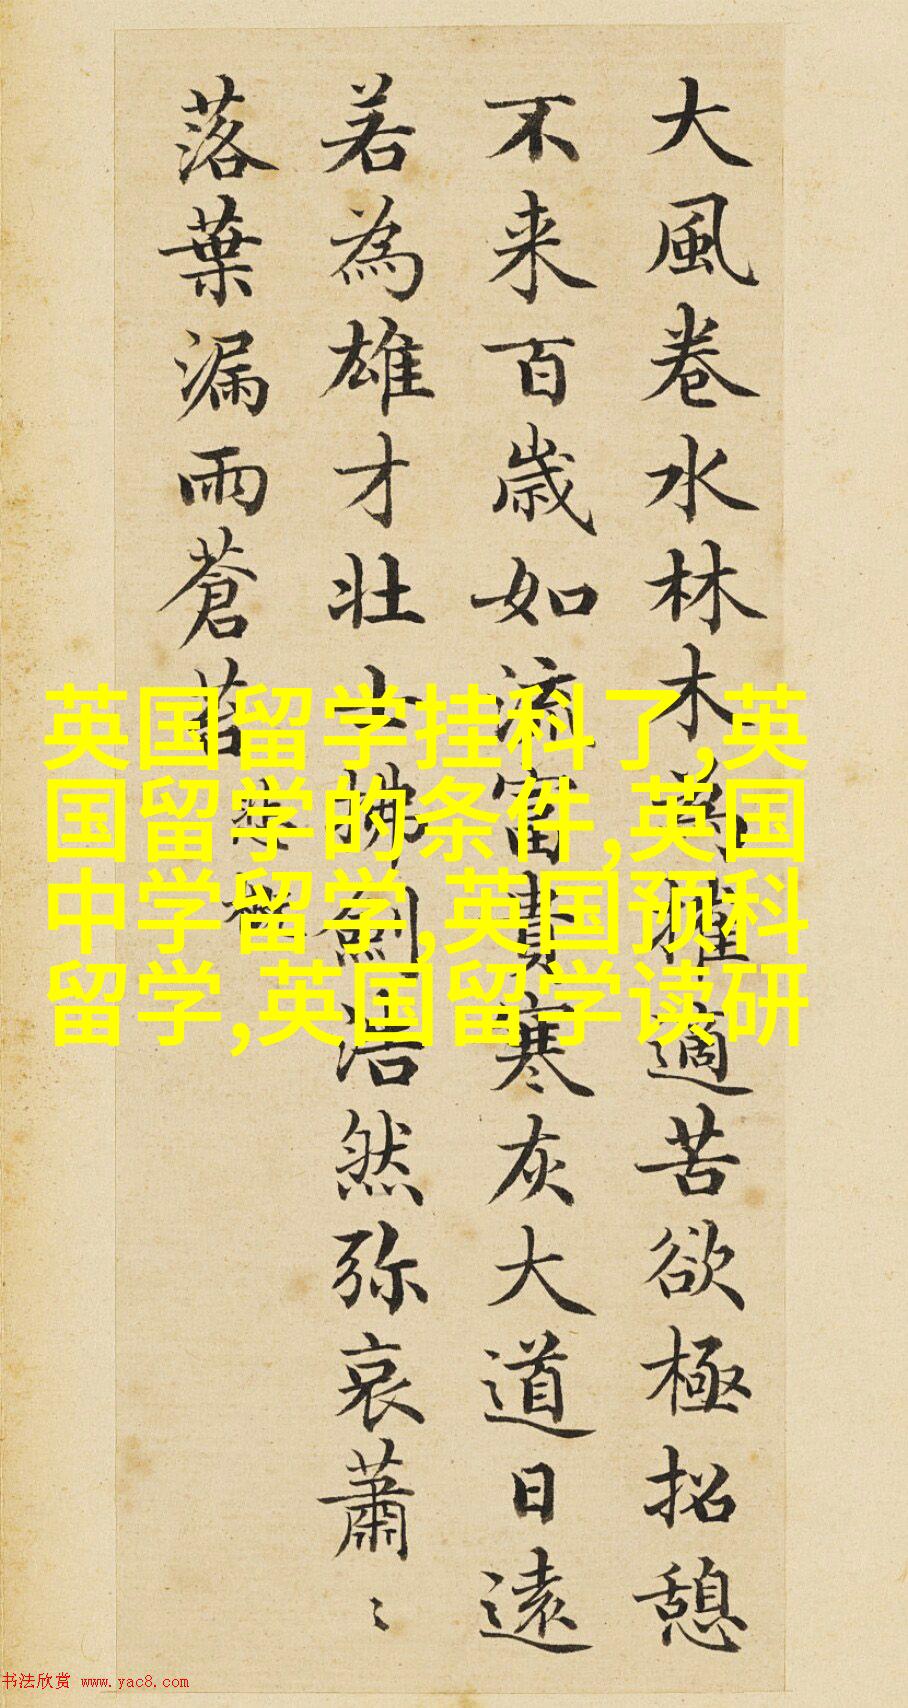 大風卷水林木為摧適苦欲極招憩
不来百歲如流富貴寒灰大道日遠
若為雄才壮士拂劍浩然弥哀蕭〻
落葉漏雨蒼苔
悲慨
英国留学挂科了,英
国留学的条件,英国
中学留学,英国预科
留学,英国留学读研
书法欣赏 www.yac8.com